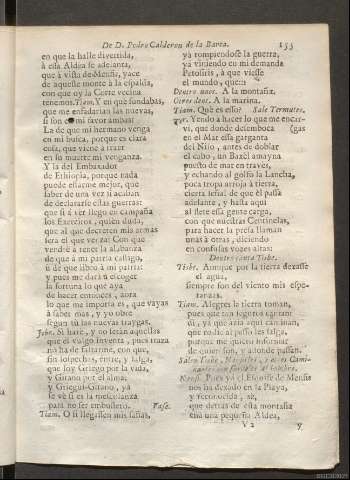 De D. Pedro Calderon de la Barca. 155
en que la halle divertida,
à essa Aldea se adelanta,
que à vista de Menfis, yace
de aqueste monte à la espalda,
con que oy la Corte vecina
tenemos. Tiam. Y en què fundabas,
que me enfadarian las nuevas,
si son en mi favor ambas?
La de que mi hermano venga
en mi busca, porque es clara
cosa, que viene à traer
en su muerte mi venganza.
Y la del Embaxador
de Ethiopia, porque nada
puede estarme mejor, que
saber de una vez si acaban
de declararse estas guerras:
que si à ver llego en campaña
los Exercitos, quièn duda,
que al que decreten mis armas
serà el que venza: Con que
vendrè à tener la alabanza
de que à mi patria castigo,
ù de que libro à mi patria:
y pues me darà à escoger
la fortuna lo que aya
de hacer entonces, aora
lo que me importa es, que vayas
à saber mas, y yo obre
segun tù las nuevas traygas.
Jebn. Si harè, y no seràn aquellas
que el vulgo inventa, pues traza
no ha de faltarme, con que,
sin sospechas, entre, y salga,
que soy Griego por la vida,
y Gitano por el alma;
y Griegui-Gitano, ya
se vè si es la mezcolanza
para no ser embustero. Vase.
Tiam. O si llegassen mis sañas,
yà rompiendose la guerra,
yà viniendo en mi demanda
Petosiris, à que viesse
el mundo, que::
Dentro unos. A la montaña.
Otros dent. A la marina.
Tiam. Què es esso? Sale Termutes.
Ter. Yendo à hacer lo que me encar-
vì, que donde desemboca (gas
en el Mar essa garganta
del Nilo, antes de doblar
el cabo, un Baxèl amayna
puesto de mar en traves,
y echando al golfo la Lancha,
poca tropa arroja à tierra,
cierta señal de que èl passa
adelante, y hasta aqui
al flete essa gente carga,
con que nuestras Centinelas,
para hacer la presa llaman
unas à otras, diciendo
en confusas voces altas:
Dentro canta Tisbe.
Tisbe. Aunque por la tierra dexasse
el agua,
siempre son del viento mis espe-
ranzas.
Tiam. Alegres la tierra toman,
pues que tan seguros cantan:
di, yà que azia aqui caminan,
que nadie al passo les salga,
porque me quiero informar
de quien son, y adonde passan.
Nausi. Pues yà el Esquife de Menfis
nos ha dexado en la Playa,
y reconocida, sè,
que detràs de esta montaña
està una pequeña Aldea,
V 2 y